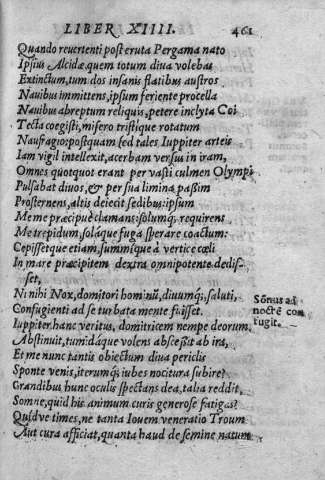 LIBER XIIII. 461
Quando reuertenti post eruta Pergama nato
Ipsius Alcidæ quem totum diua volebas
Extinctum, tum dos insanis flatibus austros
Nauibus immittens, ipsum feriente procella
Nauibus abreptum reliquis, petere inclyta Coi
Tecta coegisti, misero tristique rotatum
Naufragio: postquam sed tales Iuppiter arteis
Iam vigil intellexit, acerbam versus in iram,
Omnes quotquot erant per vasti culmen Olympi
Pulsabat diuos, & per sua limina paßim
Prosternens, altis deiecit sedibus: ipsum
Me me præcipuè clamans: solumq; requirens
Me trepidum, soláque fuga sperare coactum:
Cepissetque etiam, summisque à vertice cœli
In mare præcipitem dextra omnipotente dedis-
set,
Ni nihi Nox, domitori hominū, diuumq;, saluti,
Confugienti ad se turbata mente fuisset.
Sōnus ad
noctē con
fugit.
Iuppiter hanc veritus, domitricem nempe deorum,
Abstinuit, tumidáque volens absceßit ab ira,
Et me nunc tantis obiectum diua periclis
Sponte venis, iterumq; iubes nocitura subire?
Grandibus hunc oculis spectans dea, talia reddit,
Somne, quid his animum curis generose fatigas?
Quidve times, ne tanta Iouem veneratio Troum
Aut cura afficiat, quanta haud de semine natum